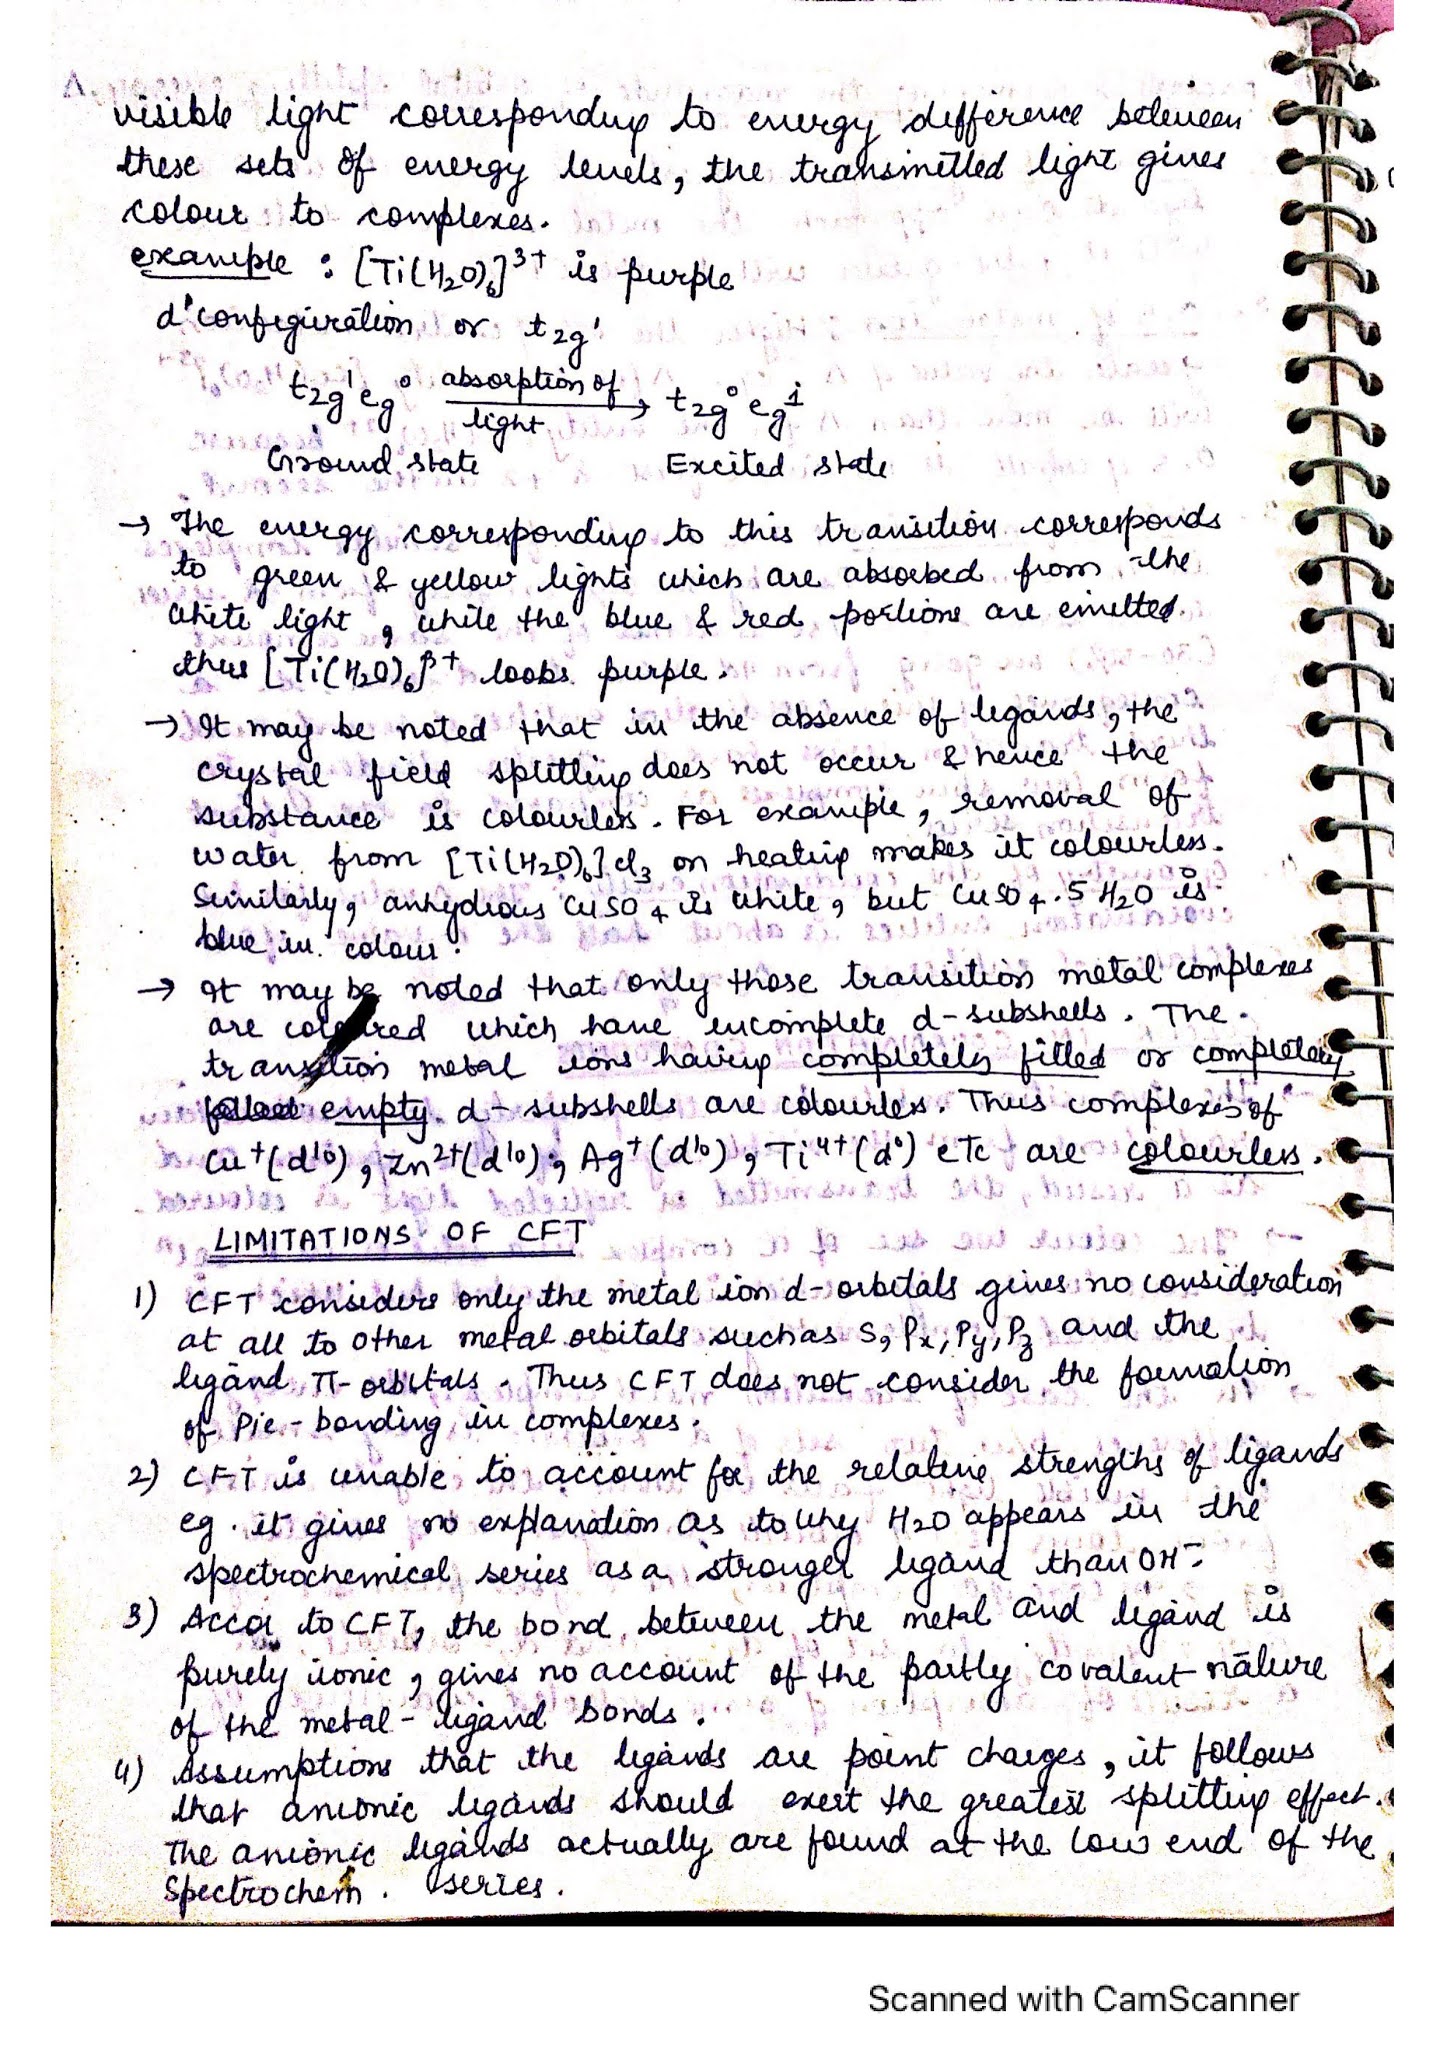 visible light corresponding to energy difference between
these sets of energy levels, the transmitted light gives
colour to complexes.
example : [Ti(H₂O)₆]³⁺ is purple
d¹ configuration or t₂g¹
t₂g¹ eg⁰ absorption of light → t₂g⁰ eg¹
Ground state Excited state
→ The energy corresponding to this transition corresponds
to green & yellow lights which are absorbed from the
white light, while the blue & red portions are emitted.
thus [Ti(H₂O)₆]³⁺ looks purple.
→ It may be noted that in the absence of ligands, the
crystal field splitting does not occur & hence the
substance is colourless. For example, removal of
water from [Ti(H₂O)₆]Cl₃ on heating makes it colourless.
Similarly, anhydrous CuSO₄ is white, but CuSO₄.5H₂O is
blue in colour.
→ It may be noted that only those transition metal complexes
are coloured which have incomplete d-subshells. The
transition metal ions having completely filled or completely
empty d-subshells are colourless. Thus complexes of
Cu⁺(d¹⁰), Zn²⁺(d¹⁰), Ag⁺(d¹⁰), Ti⁴⁺(d⁰) etc are colourless.
LIMITATIONS OF CFT
1) CFT considers only the metal ion d-orbitals gives no consideration
at all to other metal orbitals such as S, Px, Py, Pz and the
ligand π-orbitals. Thus CFT does not consider the formation
of Pie-bonding in complexes.
2) CFT is unable to account for the relative strengths of ligands
eg. it gives no explanation as to why H₂O appears in the
spectrochemical series as a stronger ligand than OH⁻.
3) Accor to CFT, the bond between the metal and ligand is
purely ionic, gives no account of the partly covalent nature
of the metal-ligand bonds.
4) Assumptions that the ligands are point charges, it follows
that anionic ligands should exert the greatest splitting effect.
The anionic ligands actually are found at the low end of the
Spectrochem. series.
Scanned with CamScanner